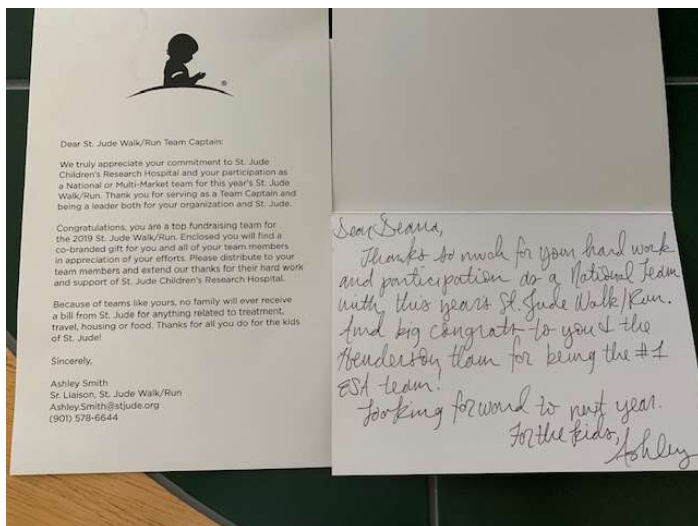 ®
Dear St. Jude Walk/Run Team Captain:
We truly appreciate your commitment to St. Jude
Children's Research Hospital and your participation as
a National or Multi-Market team for this year's St. Jude
Walk/Run. Thank you for serving as a Team Captain and
being a leader both for your organization and St. Jude.
Congratulations, you are a top fundraising team for
the 2019 St. Jude Walk/Run. Enclosed you will find a
co-branded gift for you and all of your team members
in appreciation of your efforts. Please distribute to your
team members and extend our thanks for their hard work
and support of St. Jude Children's Research Hospital.
Because of teams like yours, no family will ever receive
a bill from St. Jude for anything related to treatment,
travel, housing or food. Thanks for all you do for the kids
of St. Jude!
Sincerely,
Ashley Smith
Sr. Liaison, St. Jude Walk/Run
Ashley.Smith@stjude.org
(901) 578-6644
Dear Seana,
Thanks so much for your hard work
and participation as a National Team
with this years St. Jude Walk/Run.
And big congrats to you & the
Henderson team for being the #1
ESA team!
Looking forward to next year.
For the kids,
Ashley